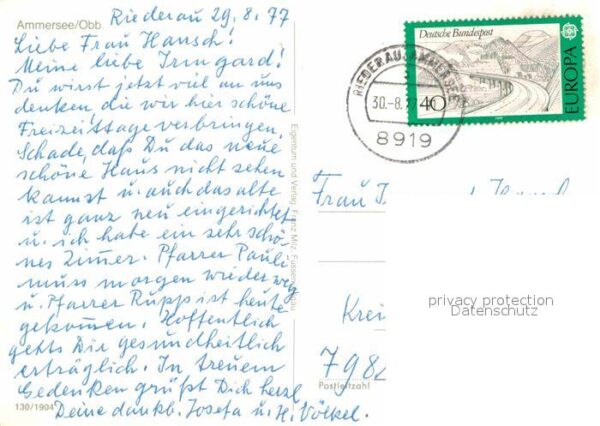 Ammersee/Obb
Riederau 29.8.77
Liebe Frau Hansch!
Meine liebe Irmgard!
Du wirst jetzt viel an uns
denken, die wir hier schöne
Freizeittage verbringen.
Schade, daß Du das neue
schöne Haus nicht sehen
kannst u. auch das alte
ist ganz neu eingerichtet
u. ich habe ein sehr schö-
nes Zimmer. Pfarrer Pauli
muss morgen wieder weg
u. Pfarrer Rupp ist heute
gekommen. Hoffentlich
gehts Dir gesundheitlich
erträglich. In treuem
Gedenken grüßt Dich herzl.
Deine dankb. Josefa u. H. Völkel.
130/1904
Eigentum und Verlag Franz Milz
Deutsche Bundespost
EUROPA
40
RIEDERAU, AMMERSEE
30.-8.77
8919
Frau
Krei
privacy protection
Datenschutz
798
Postleitzahl